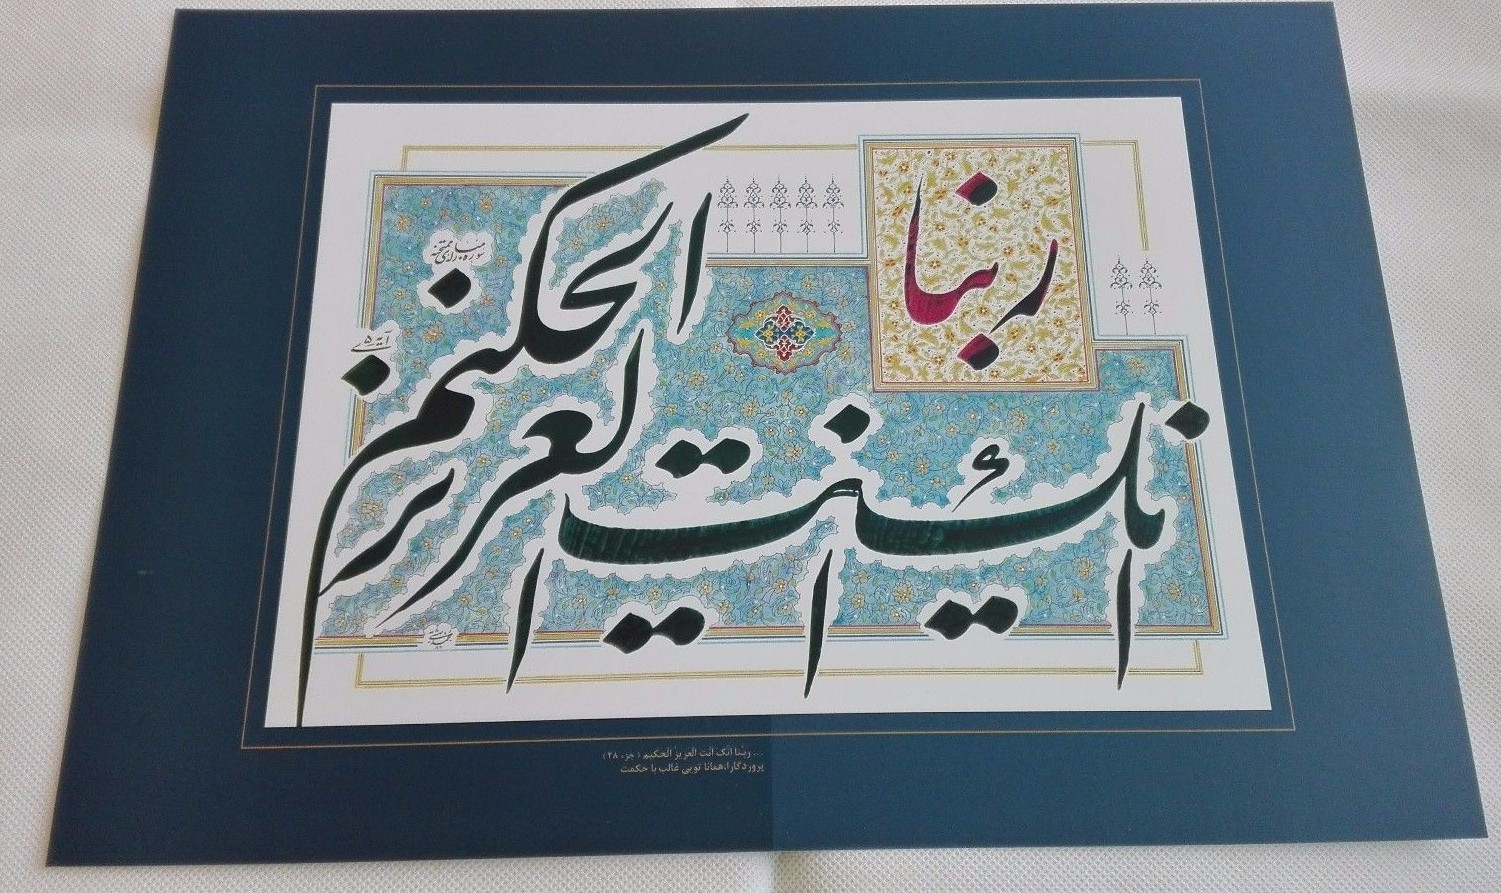 ربنا
انک انت العزیز الحکیم
سوره مبارکه ممتحنه
آیه ۵
... ربنا انک انت العزیز الحکیم (جزء ۲۸)
پروردگارا، همانا تویی غالب با حکمت